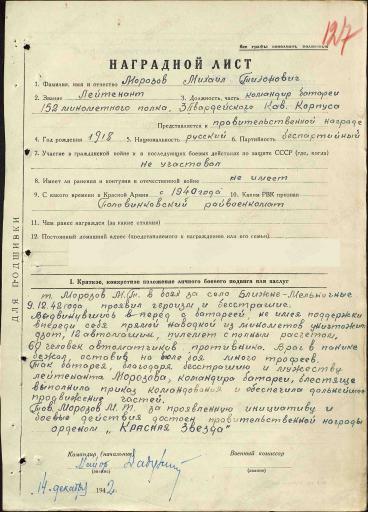 127
Все графы заполнять полностью
НАГРАДНОЙ ЛИСТ
1. Фамилия, имя и отчество Морозов Михаил Тихонович
2. Звание Лейтенант 3. Должность, часть командир батареи
152 минометного полка, 3 Гвардейского Кав. Корпуса
Представляется к правительственной награде
4. Год рождения 1918 5. Национальность русский 6. Партийность беспартийный
7. Участие в гражданской войне и в последующих боевых действиях по защите СССР (где, когда)
не участвовал
8. Имеет ли ранения и контузии в отечественной войне не имеет
9. С какого времени в Красной Армии с 1940 года 10. Каким РВК призван
райвоенкомат
11. Чем ранее награжден (за какие отличия)
12. Постоянный домашний адрес (представляемого к награждению или его семьи)
ДЛЯ ПОДШИВКИ
1. Краткое, конкретное изложение личного боевого подвига или заслуг
т. Морозов М.Т. в боях за село Ближне-Мельничные
9.12.42 года проявил героизм и бесстрашие.
Выдвинувшись в перед с батареей, не имея поддержки
впереди себя прямой наводкой из минометов уничтожил
дзот, 12 автомашин, пулемет с полным расчетом,
60 человек автоматчиков противника. Враг в панике
бежал, оставив на поле боя много трофеев.
Так батарея, благодаря бесстрашию и мужеству
лейтенанта Морозова, командира батареи, блестяще
выполнила приказ командования и обеспечила дальнейшее
продвижение частей.
Тов. Морозов М.Т. за проявленную инициативу и
боевые действия достоен правительственной награды
орденом „Красная Звезда"
Командир (начальник) Военный комиссар
Майор
(звание) (звание)
14 декабря 1942